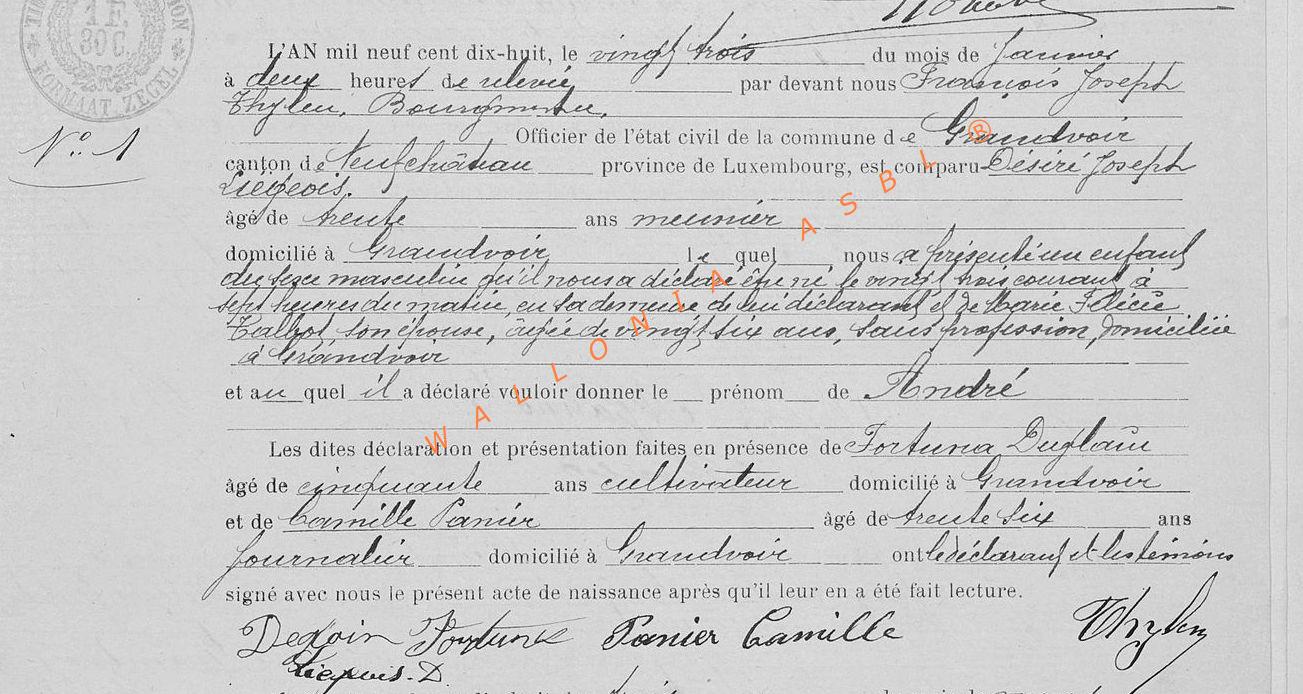 1 F.
30 C.
FORMAAT ZEGEL
L'AN mil neuf cent dix-huit, le vingt trois du mois de Janvier
à deux heures de relevée par devant nous François Joseph
Thylen, Bourgmestre,
N° 1
Officier de l'état civil de la commune de Grandvoir
canton de Neufchâteau province de Luxembourg, est comparu Désiré Joseph
Liégeois.
âgé de trente ans meunier
domicilié à Grandvoir le quel nous a présenté un enfant
du sexe masculin qu'il nous a déclaré être né le vingt trois courant à
sept heures du matin, en sa demeure de lui déclarant et de Marie
Talbot, son épouse, âgée de vingt six ans, sans profession, domiciliée
à Grandvoir
et au quel il a déclaré vouloir donner le prénom de André
Les dites déclaration et présentation faites en présence de Fortuna
âgé de cinquante ans cultivateur domicilié à Grandvoir
et de Camille Panier âgé de trente six ans
journalier domicilié à Grandvoir ont le déclarant et les témoins
signé avec nous le présent acte de naissance après qu'il leur en a été fait lecture.
Panier Camille
WALLONIA ASBL ®